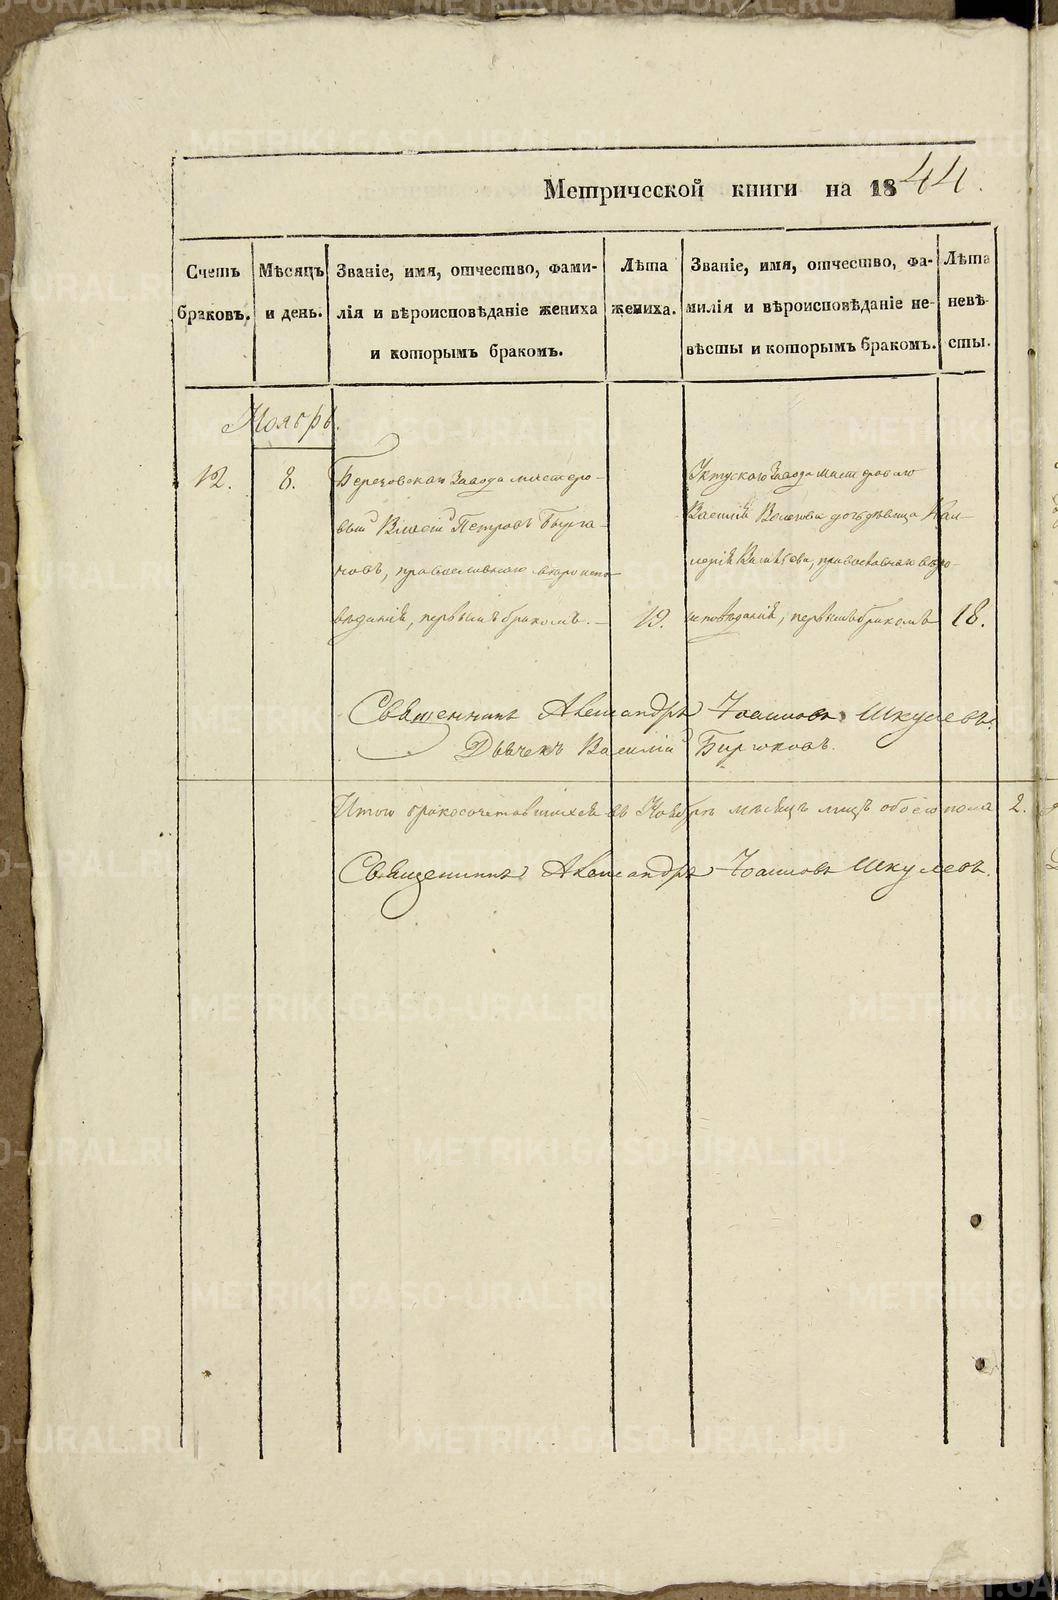 Метрической книги на 1844.
Счетъ браковъ.
Мѣсяцъ и день.
Званіе, имя, отчество, фами-
лія и вѣроисповѣданіе жениха
и которымъ бракомъ.
Лѣта жениха.
Званіе, имя, отчество, фа-
милія и вѣроисповѣданіе не-
вѣсты и которымъ бракомъ.
Лѣта невѣ-
сты.
Ноябрь.
12.
8.
Березовскаго Завода мастеро-
вый Власій Петровъ
новъ, православнаго вѣроиспо-
вѣданія, первымъ бракомъ.
19.
Уктускаго Завода мастероваго
Василія дочь дѣвица
православнаго вѣро-
исповѣданія, первымъ бракомъ
18.
Священникъ Александръ Іоанновъ Шкулевъ.
Дьячекъ Василій Бирюковъ.
Итого бракосочетавшихся въ Ноябрѣ мѣсяцѣ лицъ обоего пола 2.
Священникъ Александръ Іоанновъ Шкулевъ.
METRIKI.GASO-URAL.RU